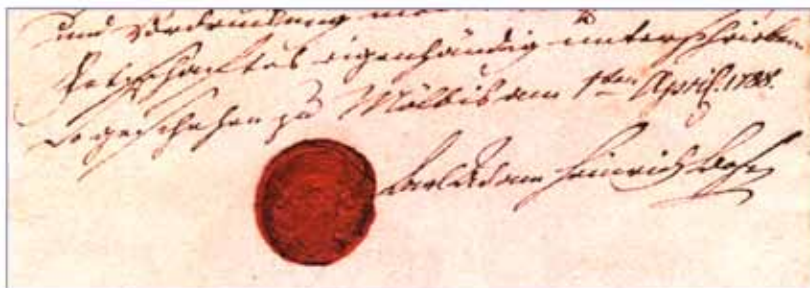 und
Petschaftes eigenhändig unterschrieben
So geschehen zu Mölbis am 1ten April. 1788.
Carl Adam Heinrich Bose